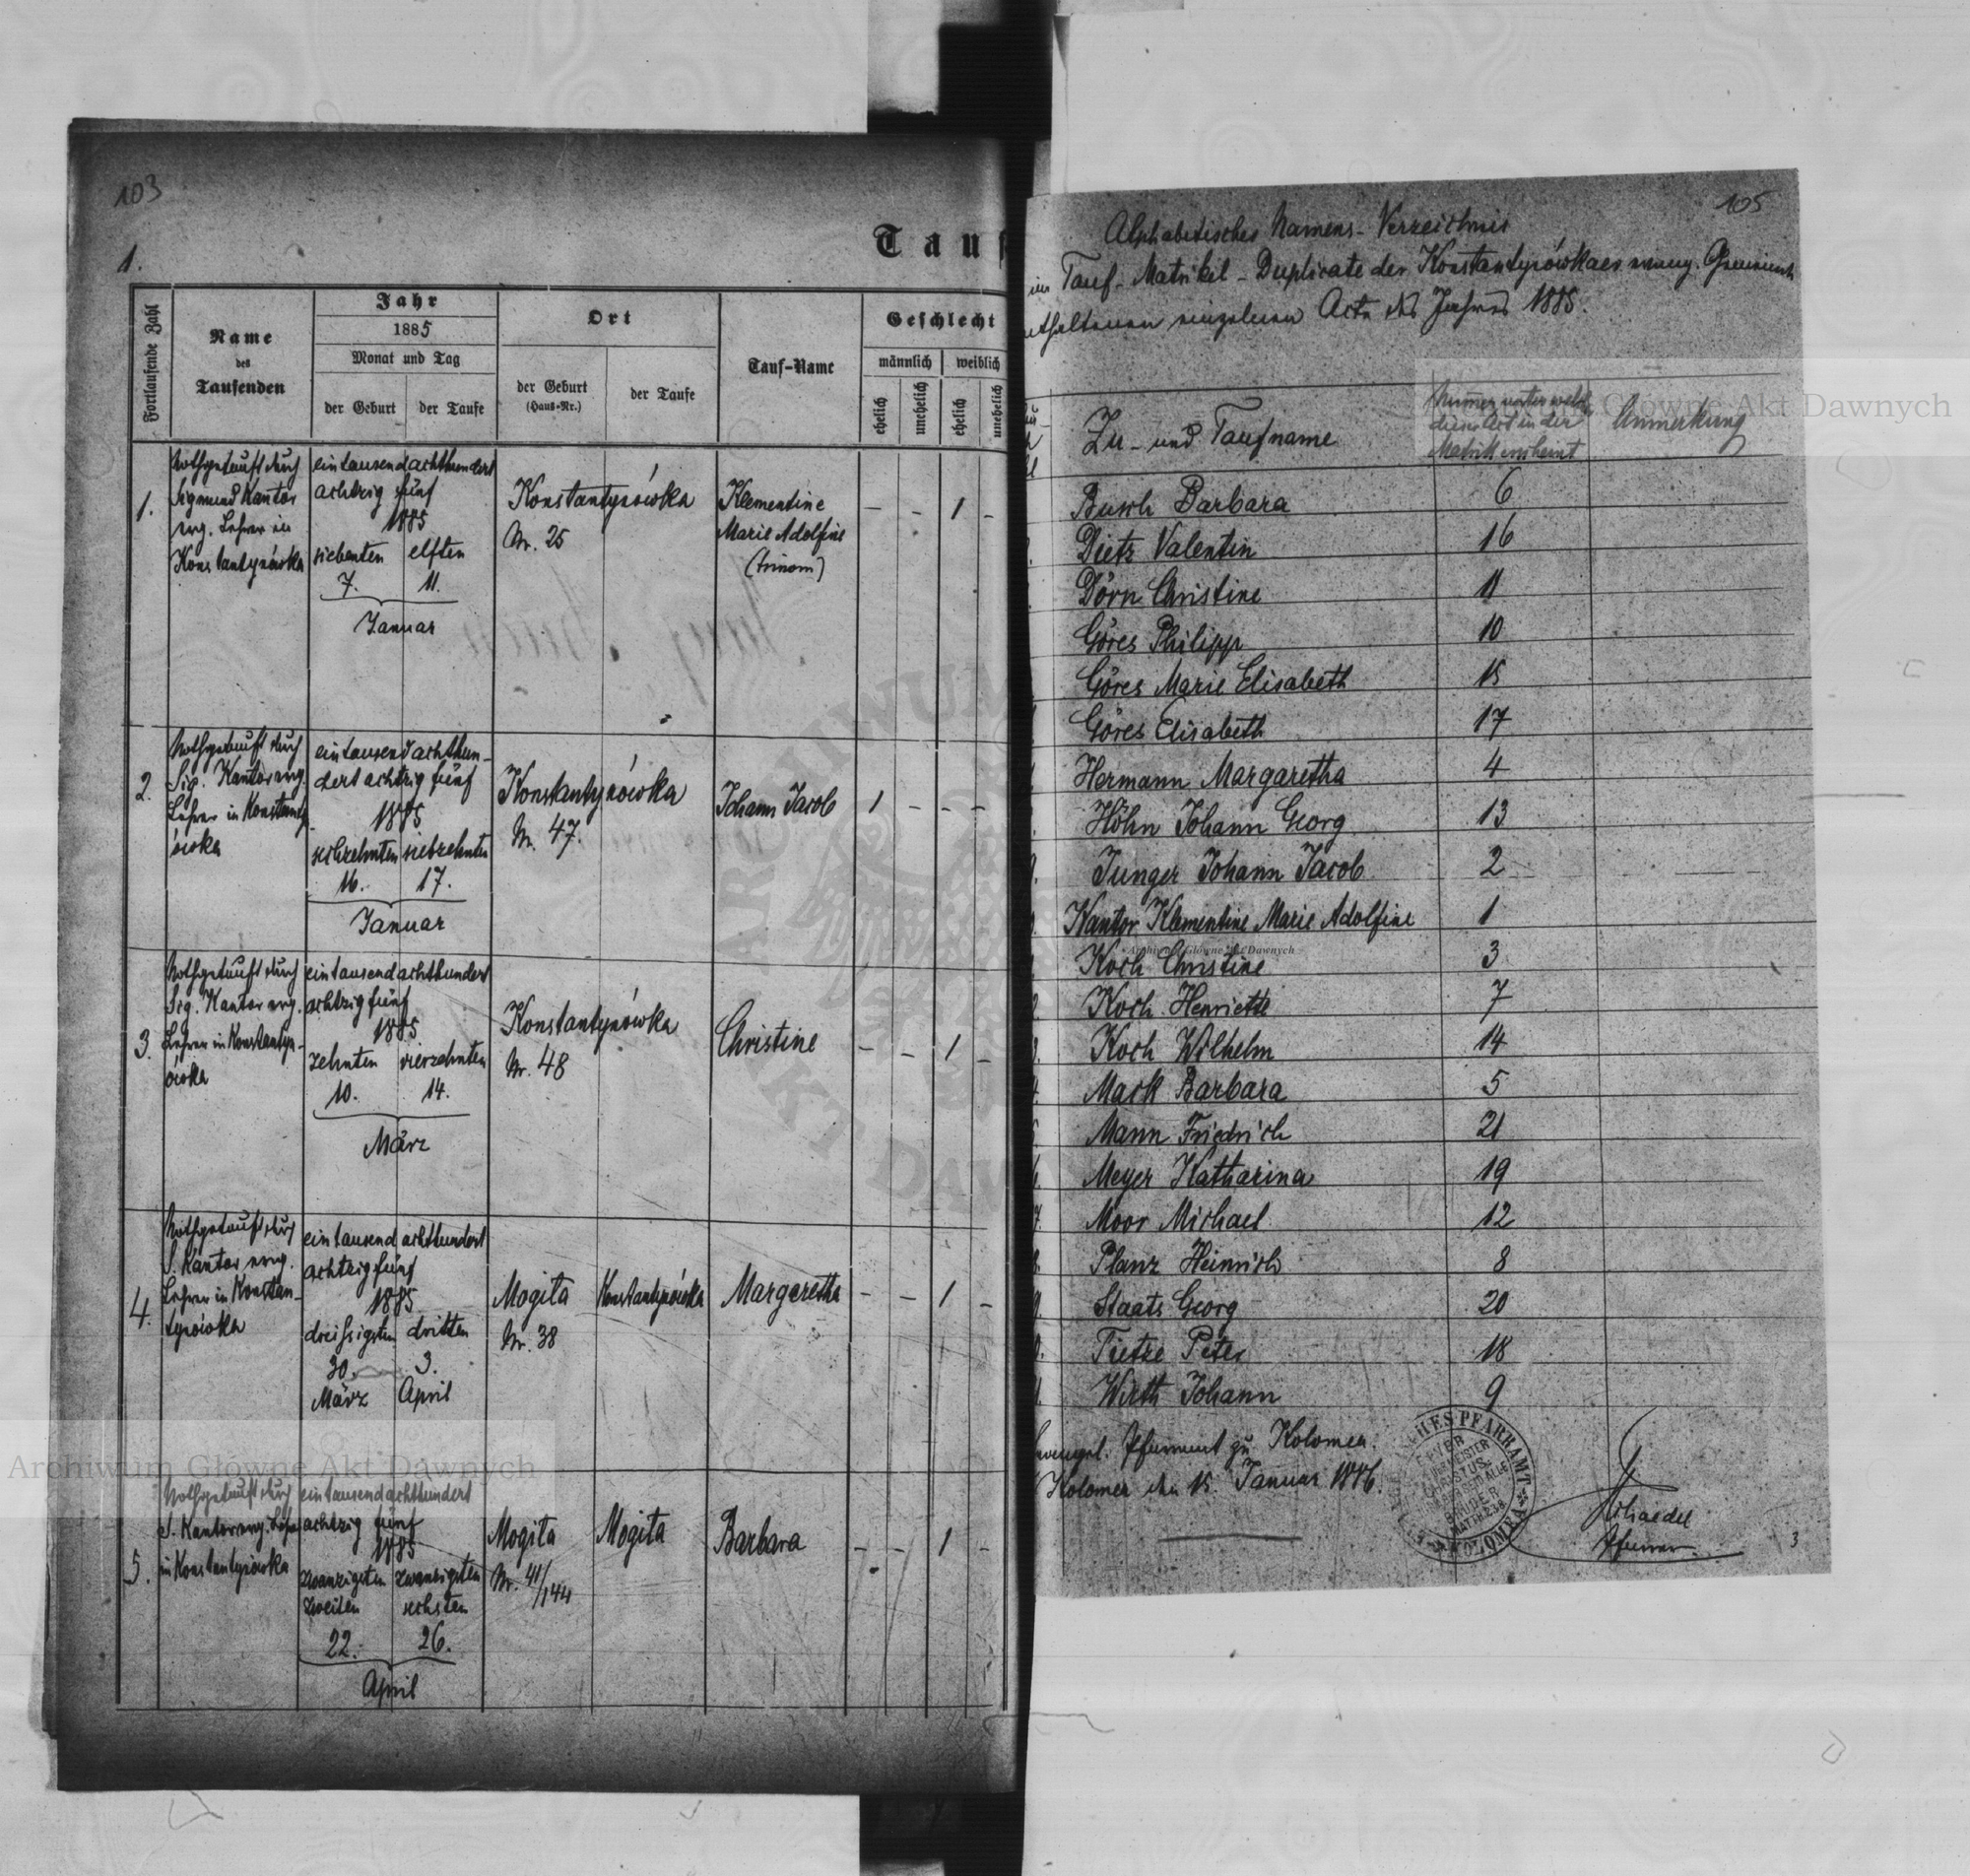 103
1.
Tauf
Fortlaufende Zahl
Name
des
Taufenden
Jahr
1885
Monat und Tag
der Geburt
der Taufe
Ort
der Geburt
(Haus-Nr.)
der Taufe
Tauf-Name
Geschlecht
männlich
weiblich
ehelich
unehelich
ehelich
unehelich
1.
Nothgetauft durch
Sigmund Kantor
evg. Lehrer in
Konstantynówka
eintausendachthundert
achtzig fünf
1885
siebenten elften
7. 11.
Januar
Konstantynówka
Nr. 25
Klementine
Marie Adolfine
(trinom)
– – 1 –
2.
Nothgetauft durch
Sig. Kantor evg.
Lehrer in Konstantyn
ówka
eintausend achthun-
dert achtzig fünf
1885
sechzehnten siebzehnten
16. 17.
Januar
Konstantynówka
Nr. 47.
Johann Jacob
1 – – –
3.
Nothgetauft durch
Sig. Kantor evg.
Lehrer in Konstantyn-
ówka
eintausend achthundert
achtzig fünf
1885
zehnten vierzehnten
10. 14.
März
Konstantynówka
Nr. 48
Christine
– – 1 –
4.
Nothgetauft durch
S. Kantor evg.
Lehrer in Konstan-
tynówka
eintausend achthundert
achtzig fünf
1885
dreissigsten dritten
30. 3.
März April
Mogita
Nr. 38
Konstantynówka
Margaretha
– – 1 –
5.
Nothgetauft durch
S. Kantor evg. Lehrer
in Konstantynówka
eintausend achthundert
achtzig fünf
1885
zwanzigsten zwanzigsten
zweiten sechsten
22. 26.
April
Mogita
Nr. 41/144
Mogita
Barbara
– – 1 –
105
Alphabetisches Namens-Verzeichnis
im Tauf-Matrikel-Duplicate der Konstantynówkaer evang. Gemeinde
enthaltenen einzelnen Acte des Jahres 1885.
Zu- und Taufname
Numer unter welch.
dieser Act in der
Matrik erscheint
Anmerkung
Busch Barbara 6
Dietz Valentin 16
Dörn Christine 11
Göres Philipp 10
Göres Marie Elisabeth 15
Göres Elisabeth 17
Hermann Margaretha 4
Höhn Johann Georg 13
Junger Johann Jacob 2
Kantor Klementine Marie Adolfine 1
Koch Christine 3
Koch Henriette 7
Koch Wilhelm 14
Mack Barbara 5
Mann Friedrich 21
Meyer Katharina 19
Moor Michael 12
Planz Heinrich 8
Staats Georg 20
Tietze Peter 18
Wirth Johann 9
Evangel. Pfarramt zu Kolomea.
Kolomea den 15. Januar 1886.
PFARRAMT
KOLOMEA
EUER
MEISTER
CHRISTUS
IHR ABER SEID ALLE
BRÜDER
MATTH. 23.8
Pfarrer
3
Archiwum Główne Akt Dawnych
Archiwum Główne Akt Dawnych
Archiwum Główne Akt Dawnych
ARCHIWUM
AKT DAW